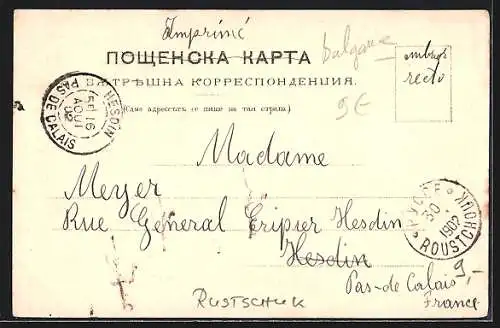 Imprimé
ПОЩЕНСКА КАРТА
bulgarie
timbre
recto
ВѪТРѢШНА КОРРЕСПОНДЕНЦИЯ.
9E
(Само адресътъ се пише на тая страна.)
HESDIN
16
AOUT
02
PAS DE CALAIS
Madame
Meyer
РУССЕ
30
1902
ROUSTCHOUK
Rue General Tripier Hesdin
Hesdin
Pas-de Calais
9,-
France
RUSTSCHUK